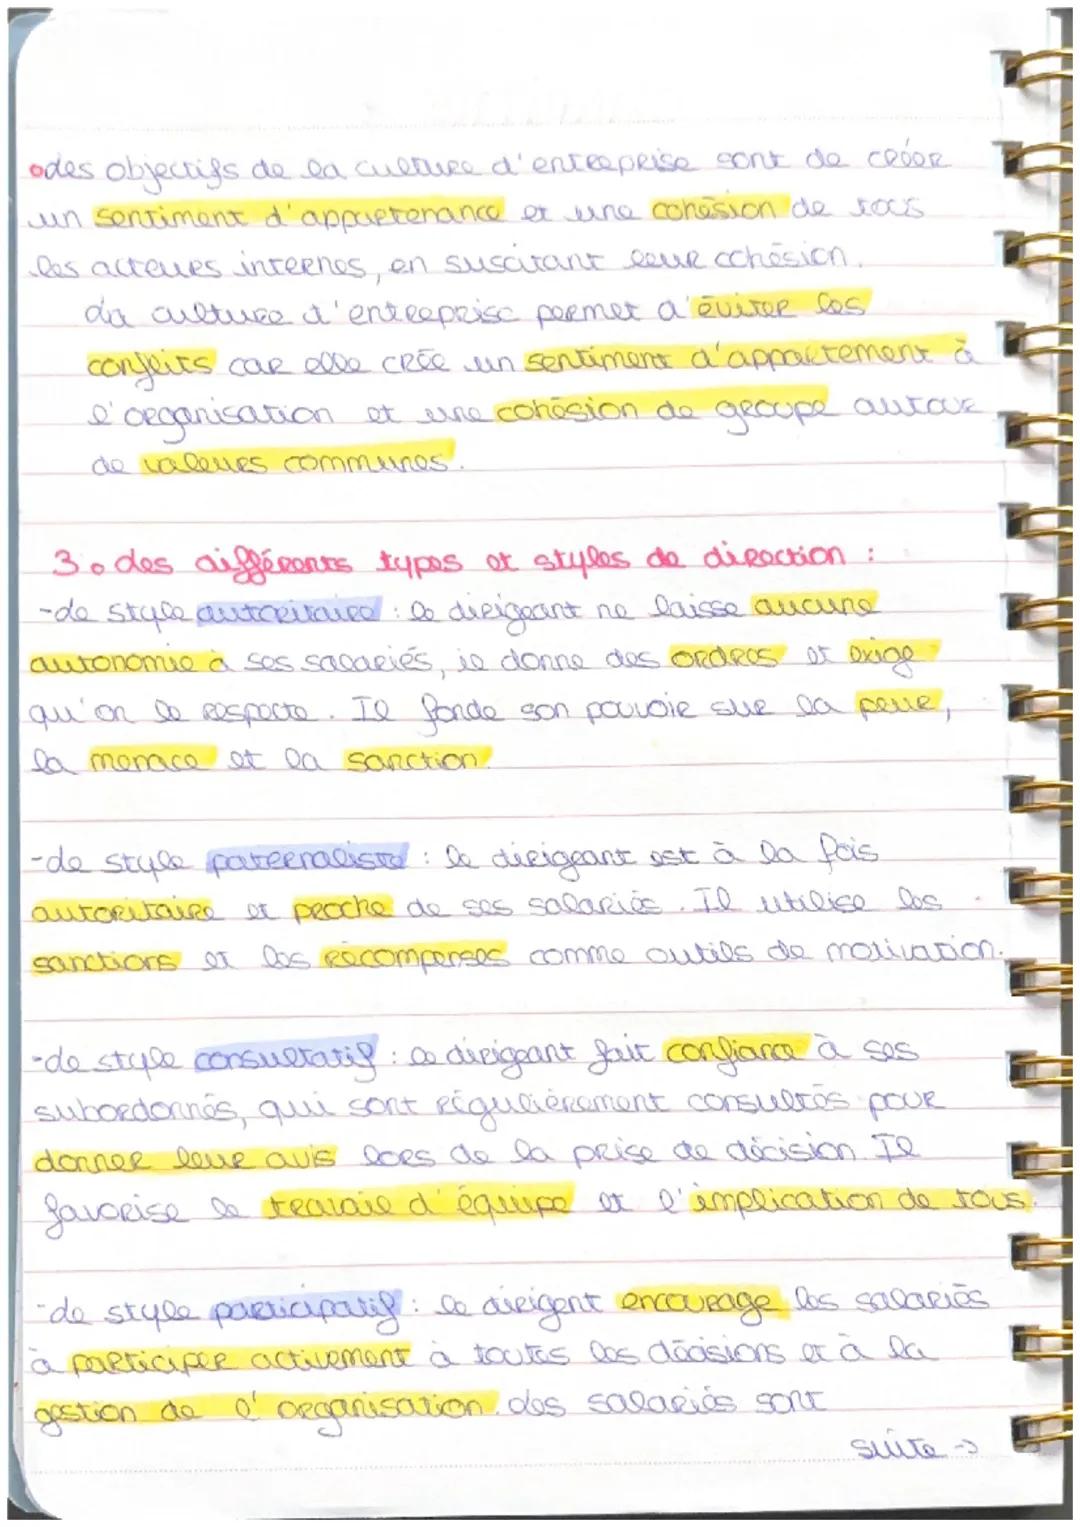 • Les objectifs de la culture d'entreprise sont de créer
un sentiment d'appartenance et une cohésion de tous
les acteurs internes, en suscitant leur cohésion.
La culture d'entreprise permet d'éviter les
conflits car elle crée un sentiment d'appartement à
l'organisation et une cohésion de groupe autour
de valeurs communes.
3. Les différents types et styles de direction :
- Le style autoritaire : le dirigeant ne laisse aucune
autonomie à ses salariés, il donne des ordres et exige
qu'on le respecte. Il fonde son pouvoir sur la peur,
la menace et la sanction.
- Le style paternaliste : le dirigeant est à la fois
autoritaire et proche de ses salariés. Il utilise les
sanctions et les récompenses comme outils de motivation.
- Le style consultatif : le dirigeant fait confiance à ses
subordonnés, qui sont régulièrement consultés pour
donner leur avis lors de la prise de décision. Il
favorise le travail d'équipe et l'implication de tous.
- Le style participatif : le dirigent encourage les salariés
à participer activement à toutes les décisions et à la
gestion de l'organisation. Les salariés sont
suite ->